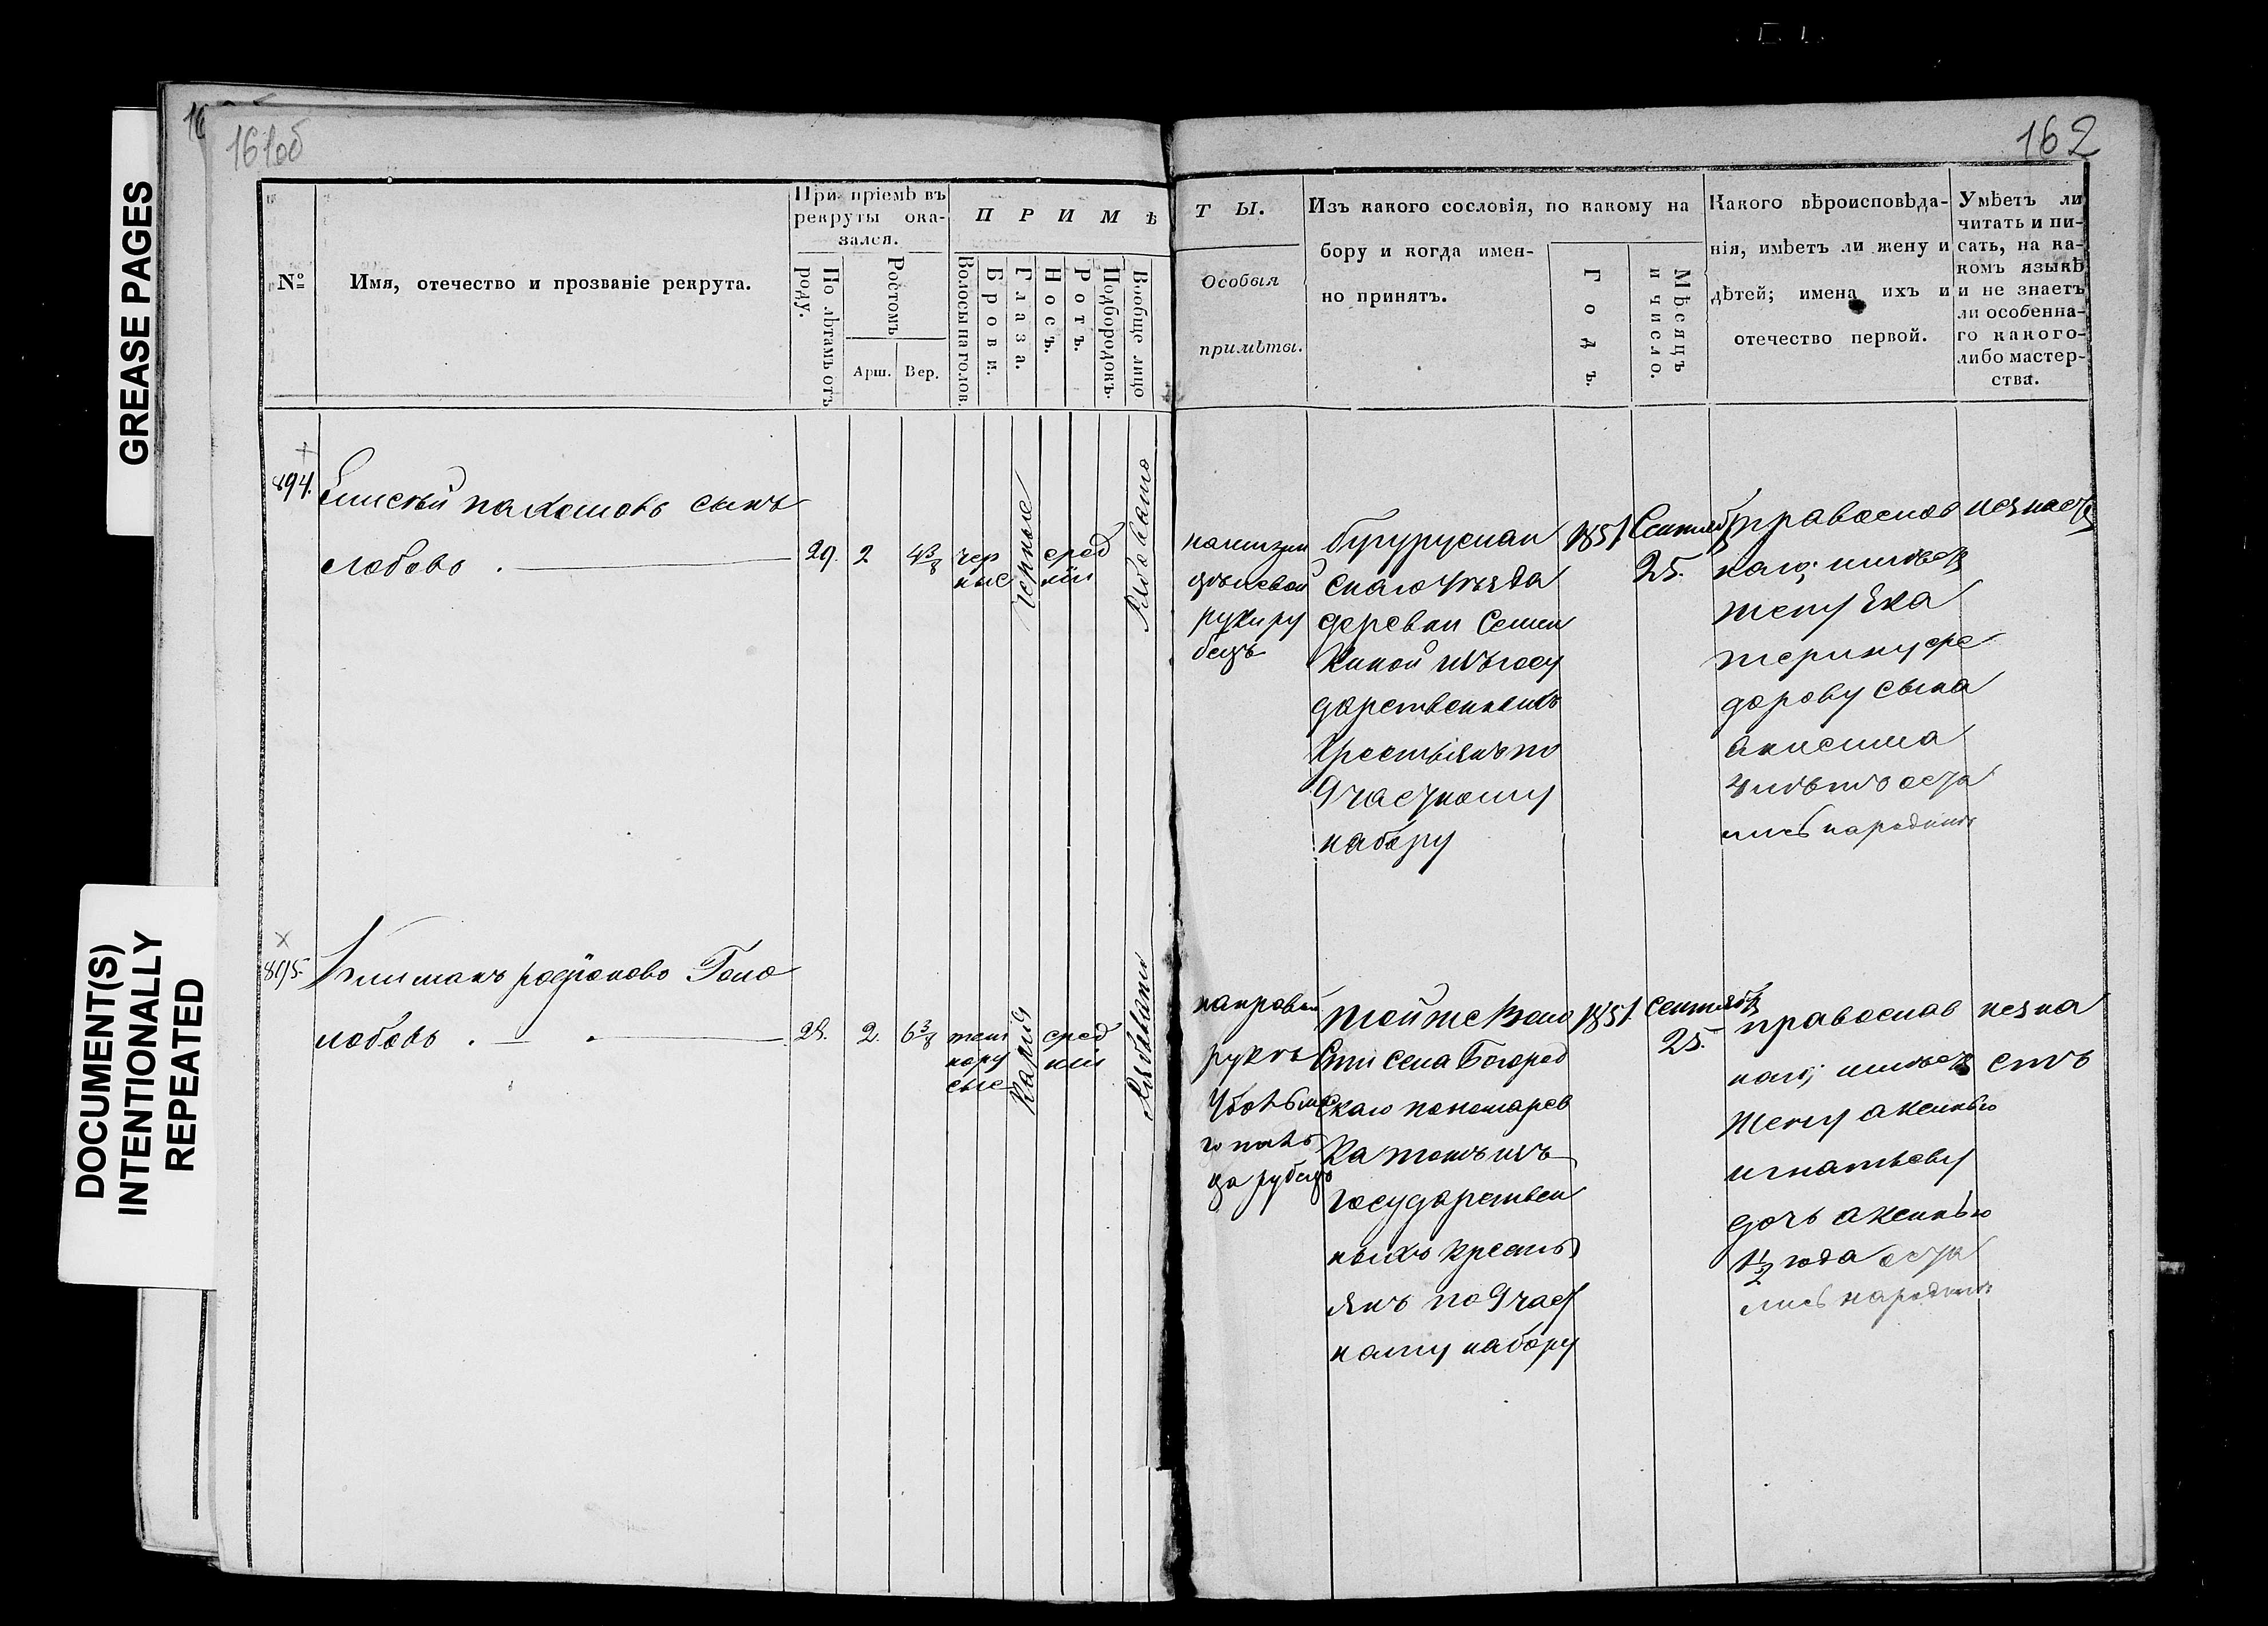 161об
162
GREASE PAGES
DOCUMENT(S)
INTENTIONALLY
REPEATED
№
Имя, отечество и прозваніе рекрута.
При пріемѣ въ
рекруты ока-
зался.
По лѣтамъ отъ
роду.
Ростомъ
Арш.
Вер.
П Р И М Ѣ
Волосы на голов.
Брови.
Глаза.
Носъ.
Ротъ.
Подбородокъ
Вообще лицо
Т Ы.
Особыя
примѣты.
Изъ какого сословія, по какому на
бору и когда имен-
но принятъ.
Годъ.
Мѣсяцъ
и число.
Какого вѣроисповѣда-
нія, имѣетъ ли жену и
дѣтей; имена ихъ и
отечество первой.
Умѣетъ ли
читать и пи-
сать, на ка-
комъ языкѣ
и не знаетъ
ли особенна-
го какого-
либо мастер-
ства.
894.
Елисѣй сынъ
29.
2
4 3/8
чер
ные
черные
сред
ній
рукиру
бецъ
бугуруслан
скаго уѣзда
деревни Семен
киной изъ госу
дарственныхъ
крестьянъ по
9 частному
набору
1851
Сентябр
25.
православ
наго; имѣетъ
жену Ека
терину фе
дорову сына
анисима
4 лѣтъ оста
лись народинѣ
незнаетъ
895.
родіоново Голо
любовъ
28.
2.
6 3/8
темн
нору
сые
Карія
сред
ній
Рябовато
направой
рукѣ
рубецъ
тойже воло
сти села Богород
скаго пономарев
ка тожъ изъ
государствен
ныхъ кресть
янъ по 9 част
ному набору
1851
сентябр
25.
православ
наго; имѣетъ
жену аксинью
игнатьеву
дочь аксинью
1 1/2 года оста
лись народинѣ
незна
етъ